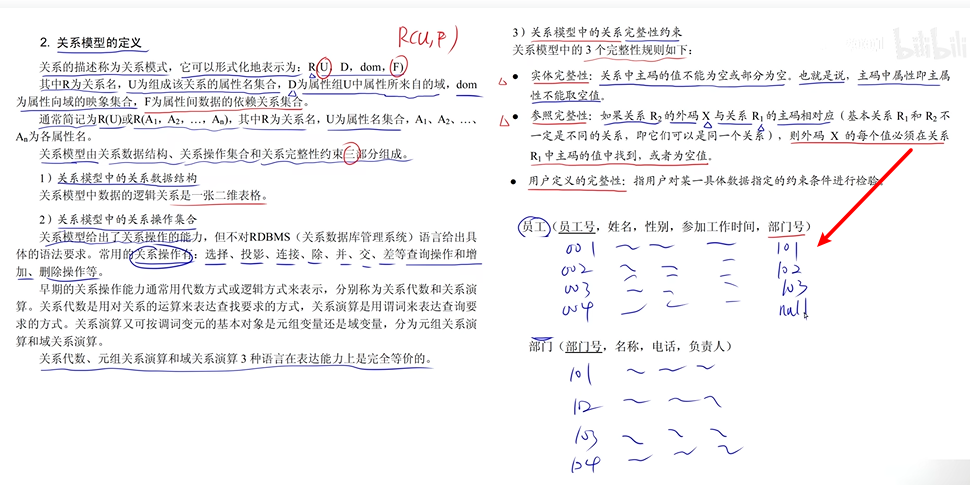 2. 关系模型的定义
R(U,F)
关系的描述称为关系模式，它可以形式化地表示为：R(U, D, dom, F)
其中R为关系名，U为组成该关系的属性名集合，D为属性组U中属性所来自的域，dom
为属性向域的映象集合，F为属性间数据的依赖关系集合。
通常简记为R(U)或R(A₁, A₂, …, Aₙ)，其中R为关系名，U为属性名集合，A₁、A₂、…、
Aₙ为各属性名。
关系模型由关系数据结构、关系操作集合和关系完整性约束三部分组成。
1）关系模型中的关系数据结构
关系模型中数据的逻辑关系是一张二维表格。
2）关系模型中的关系操作集合
关系模型给出了关系操作的能力，但不对RDBMS（关系数据库管理系统）语言给出具
体的语法要求。常用的关系操作有：选择、投影、连接、除、并、交、差等查询操作和增
加、删除操作等。
早期的关系操作能力通常用代数方式或逻辑方式来表示，分别称为关系代数和关系演
算。关系代数是用对关系的运算来表达查找要求的方式，关系演算是用谓词来表达查询要
求的方式。关系演算又可按调词变元的基本对象是元组变量还是域变量，分为元组关系演
算和域关系演算。
关系代数、元组关系演算和域关系演算 3 种语言在表达能力上是完全等价的。
3）关系模型中的关系完整性约束
关系模型中的 3 个完整性规则如下：
● 实体完整性：关系中主码的值不能为空或部分为空。也就是说，主码中属性即主属
性不能取空值。
● 参照完整性：如果关系 R₂的外码 X 与关系 R₁的主码相对应（基本关系 R₁和 R₂不
一定是不同的关系，即它们可以是同一个关系），则外码 X 的每个值必须在关系
R₁中主码的值中找到，或者为空值。
● 用户定义的完整性：指用户对某一具体数据指定的约束条件进行检验。
员工（员工号，姓名，性别，参加工作时间，部门号）
001 101
002 102
003 103
004 null
部门（部门号，名称，电话，负责人）
101
102
103
104
bilibili